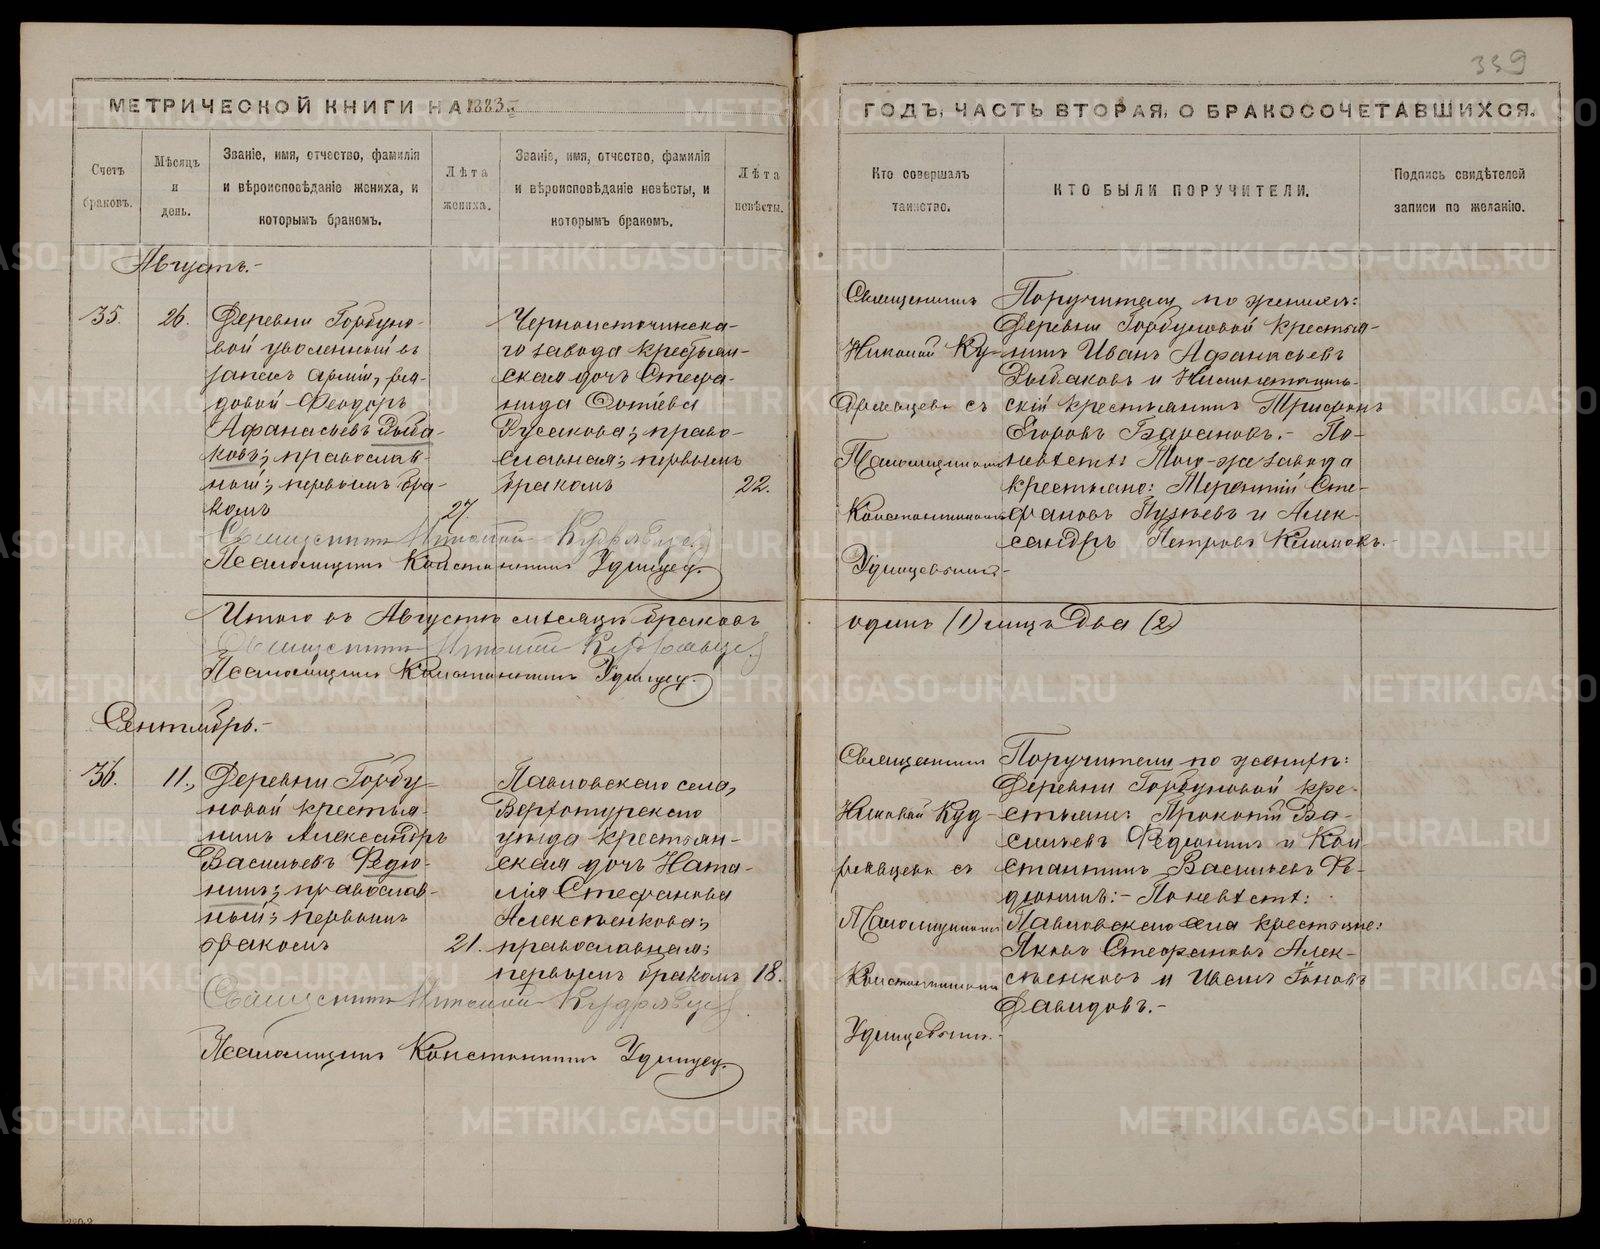 339
МЕТРИЧЕСКОЙ КНИГИ НА 1883
ГОДЪ, ЧАСТЬ ВТОРАЯ, О БРАКОСОЧЕТАВШИХСЯ.
Счетъ браковъ.
Мѣсяцъ и день.
Званіе, имя, отчество, фамилія
и вѣроисповѣданіе жениха, и
которымъ бракомъ.
Лѣта жениха.
Званіе, имя, отчество, фамилія
и вѣроисповѣданіе невѣсты, и
которымъ бракомъ.
Лѣта невѣсты.
Кто совершалъ
таинство.
КТО БЫЛИ ПОРУЧИТЕЛИ.
Подпись свидѣтелей
записи по желанію.
Августъ.-
35.
26.
Деревни Горбуно-
вой уволенный въ
запасъ арміи, ря-
довой Феодоръ
Афанасьевъ Рыба-
ковъ; православ-
ный; первымъ бра-
комъ
27.
Черноисточинска-
го завода крестьян-
ская дочь Стефа-
нида
Кусакова; право-
славная; первымъ
бракомъ
22.
Священникъ
Николай Ку-
дрявцевъ съ
Псаломщикомъ
Константиномъ
Удинцевымъ.-
Поручители по женихѣ:
Деревни Горбуновой крестья-
нинъ Иванъ Афанасьевъ
Рыбаковъ и Нижнетагиль-
скій крестьянинъ Трифонъ
Егоровъ Барановъ.- По
невѣстѣ: Того-же завода
крестьяне: Терентій Сте-
фановъ Пузѣевъ и Алек-
сандръ Петровъ Климовъ.-
Священникъ Николай Кудрявцевъ
Псаломщикъ Константинъ Удинцев.
Итого въ Августѣ мѣсяцѣ браковъ
одинъ (1) лицъ два (2)
Священникъ Николай Кудрявцев
Псаломщикъ Константинъ Удинцев.
Сентябрь.-
36.
11.
Деревни Горбу-
новой крестья-
нинъ Александръ
Васильевъ Федю-
нинъ; православ-
ный; первымъ
бракомъ
21.
Павловскаго села,
Верхотурскаго
уѣзда крестьян-
ская дочь Ната-
лія Стефанова
Алексѣенкова;
православная;
первымъ бракомъ
18.
Священникъ
Николай Куд-
рявцевъ съ
Псаломщикомъ
Константиномъ
Удинцевымъ.-
Поручители по женихѣ:
Деревни Горбуновой кре-
стьяне: Прокопій Ва-
сильевъ Федюнинъ и Кон-
стантинъ Васильевъ Фе-
дюнинъ:- По невѣстѣ:
Павловскаго села крестьяне:
Яковъ Стефановъ Алек-
сѣенковъ и Иванъ
Давидовъ.-
Священникъ Николай Кудрявцев
Псаломщикъ Константинъ Удинцев.
METRIKI.GASO-URAL.RU